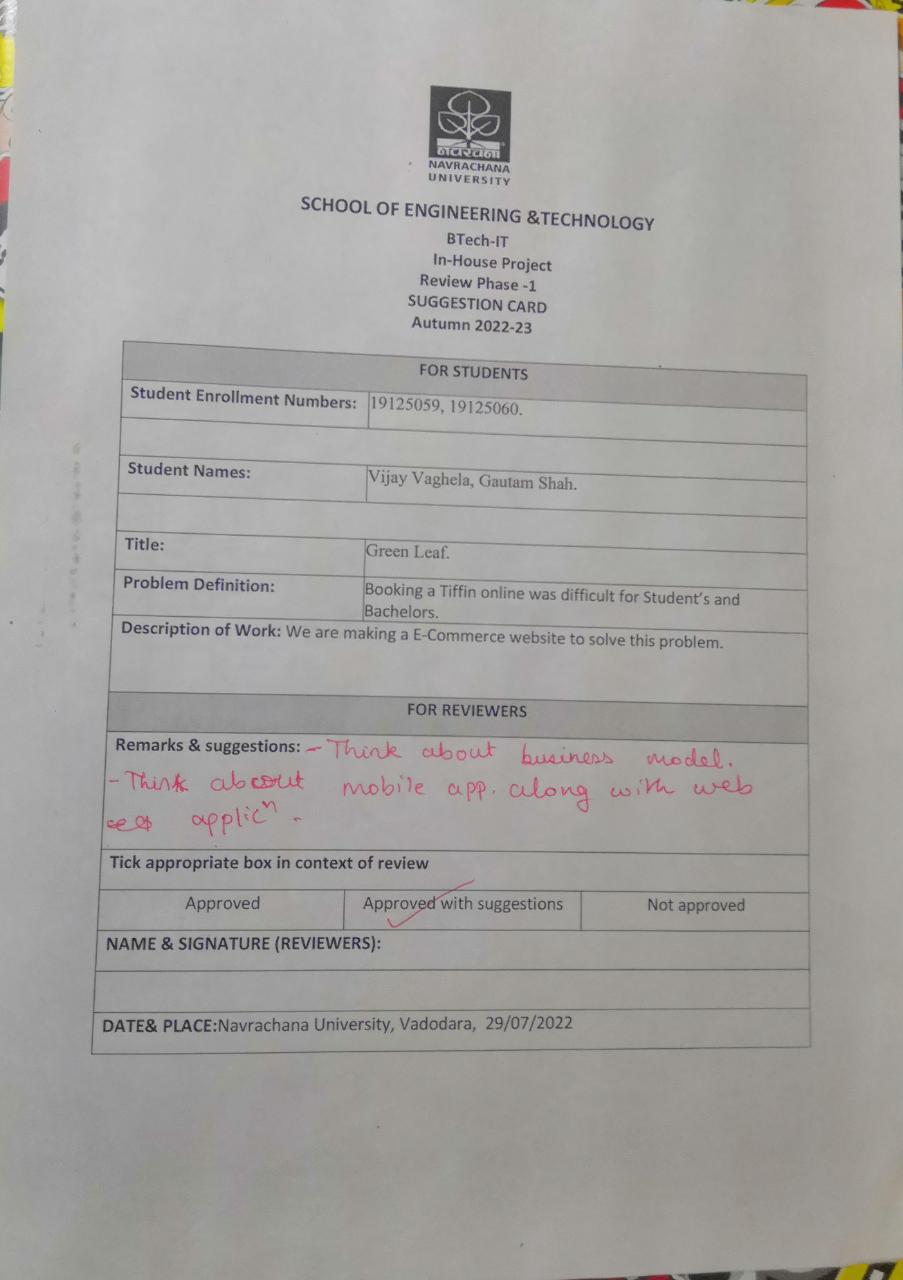 नवरचना
NAVRACHANA
UNIVERSITY
SCHOOL OF ENGINEERING &TECHNOLOGY
BTech-IT
In-House Project
Review Phase -1
SUGGESTION CARD
Autumn 2022-23
FOR STUDENTS
Student Enrollment Numbers: 19125059, 19125060.
Student Names: Vijay Vaghela, Gautam Shah.
Title: Green Leaf.
Problem Definition: Booking a Tiffin online was difficult for Student's and
Bachelors.
Description of Work: We are making a E-Commerce website to solve this problem.
FOR REVIEWERS
Remarks & suggestions: - Think about business model.
- Think about mobile app. along with web
applicⁿ.
Tick appropriate box in context of review
Approved Approved with suggestions Not approved
NAME & SIGNATURE (REVIEWERS):
DATE& PLACE:Navrachana University, Vadodara, 29/07/2022